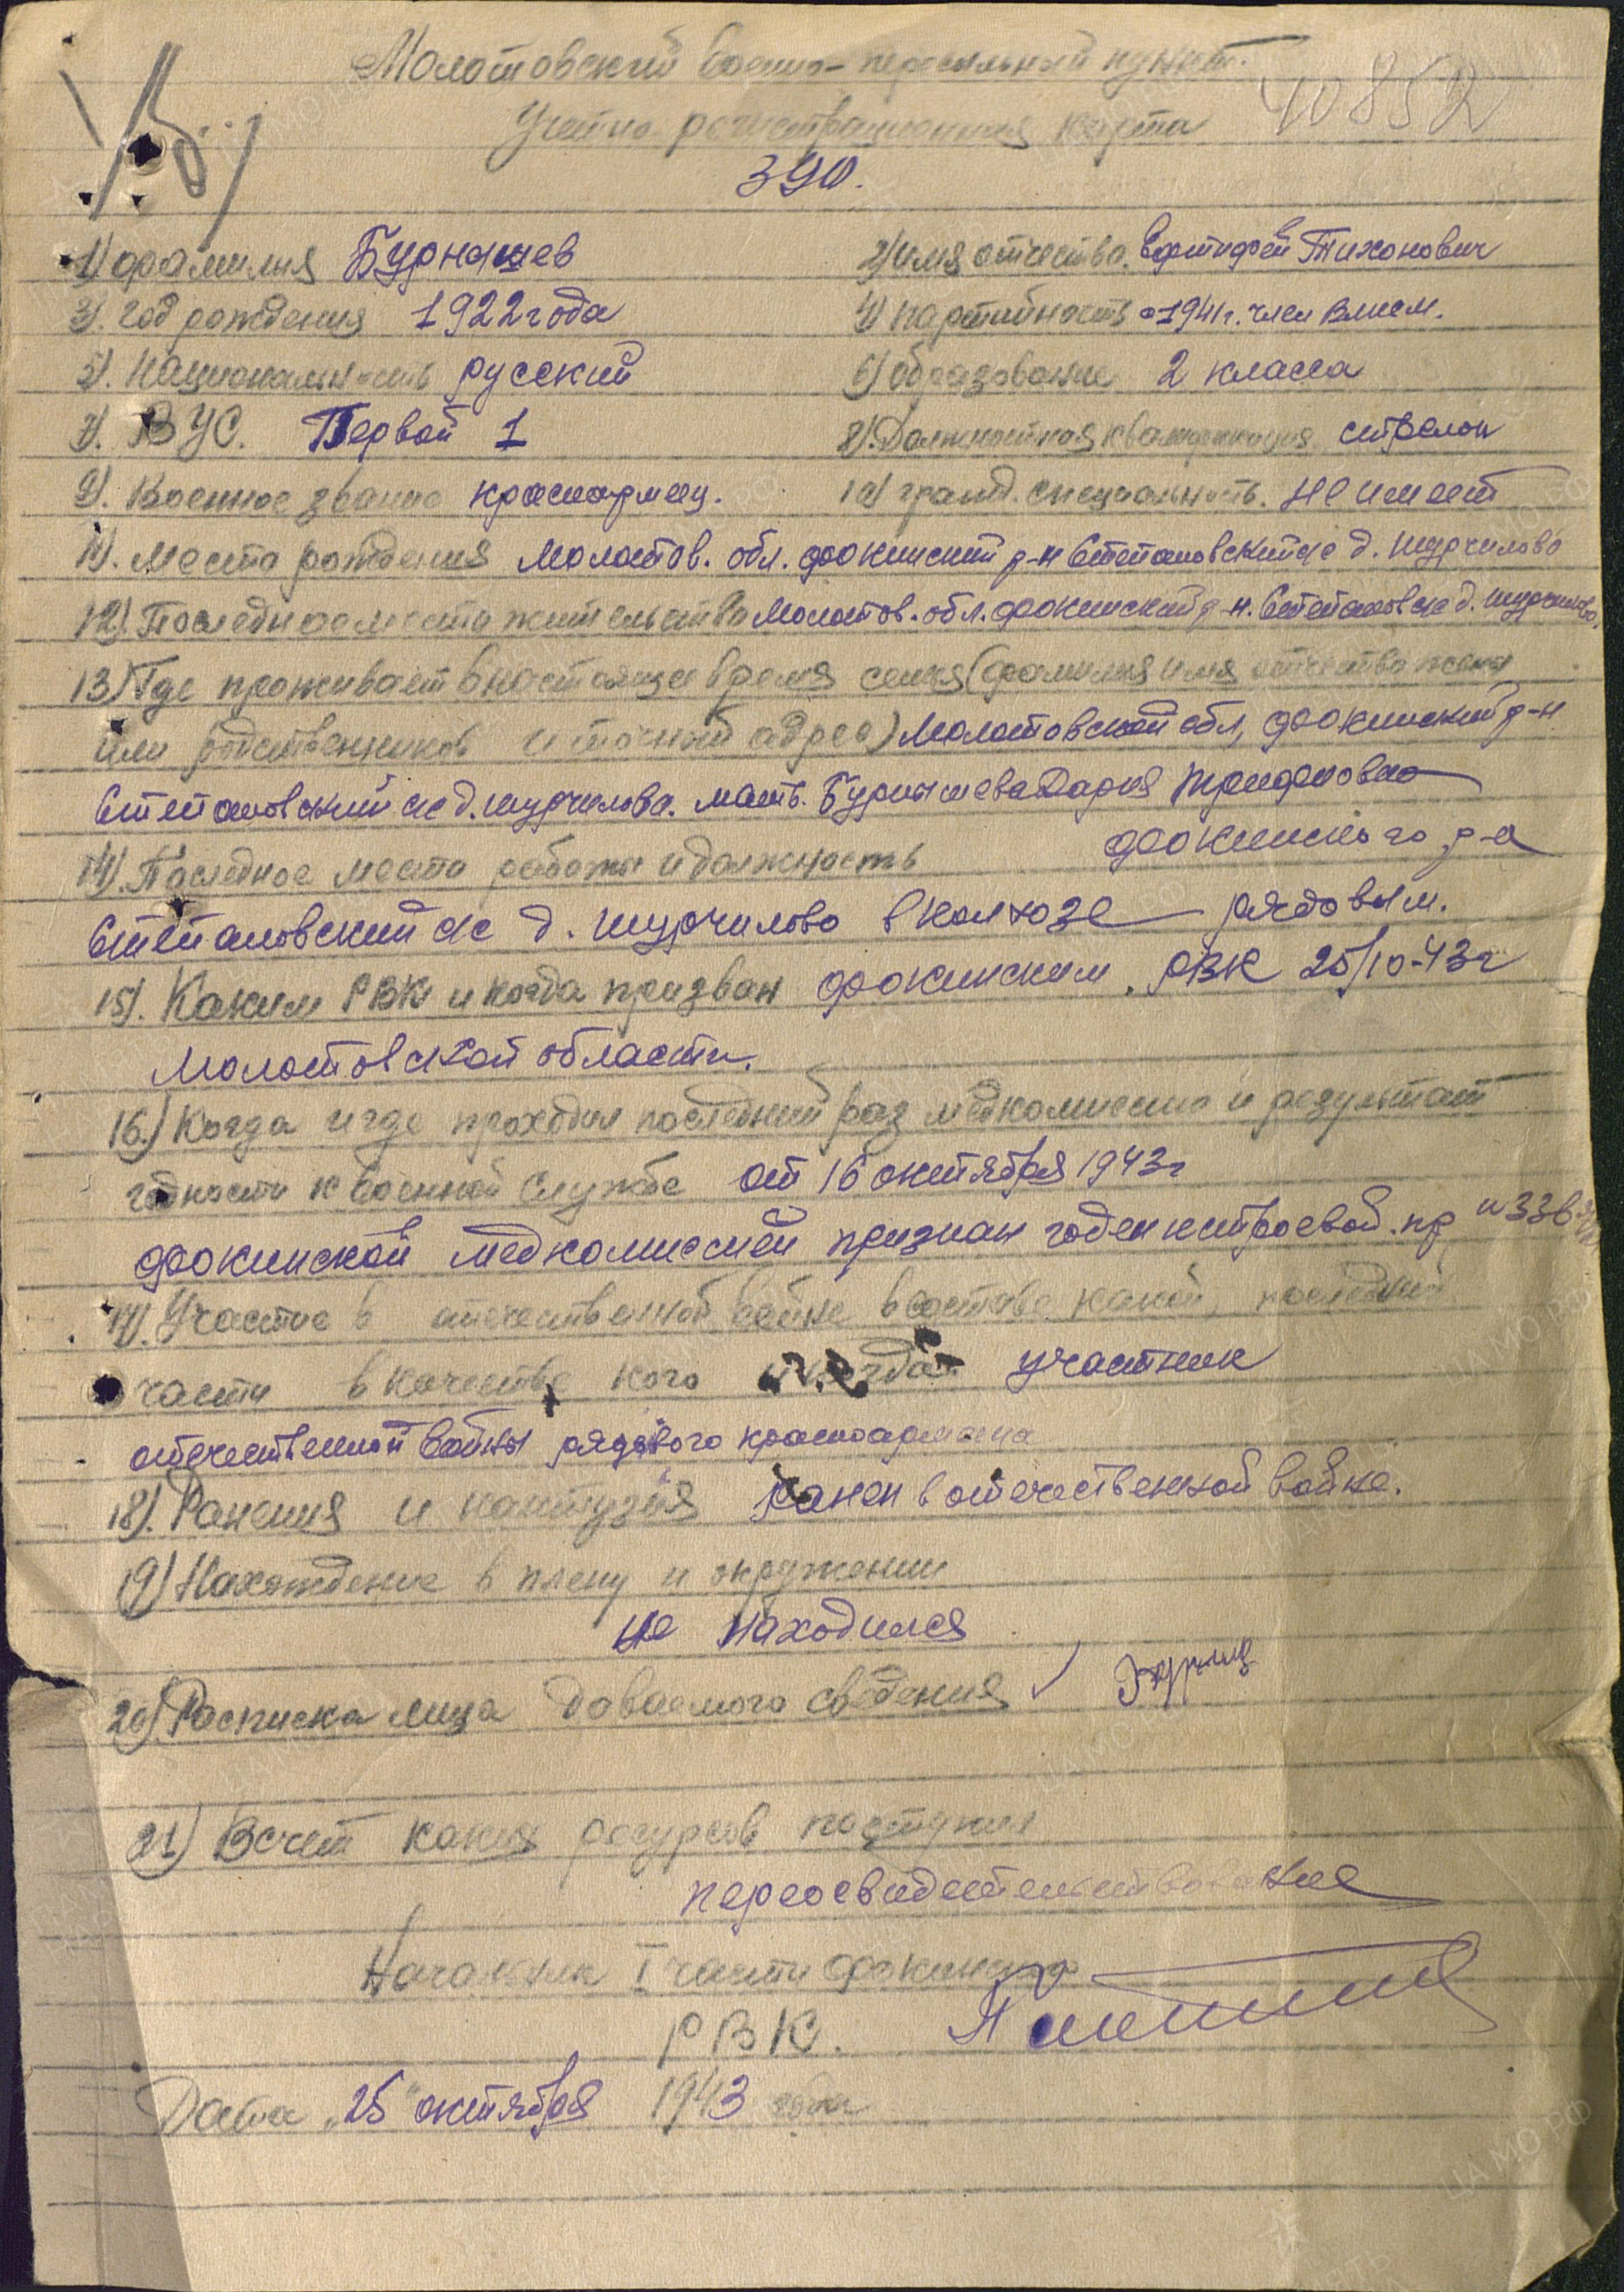 Молотовский военно-пересыльный пункт.
40852
Учетно регистрационная карта
390.
1) фамилия Бурнышев 2) имя отчество. Тихонович
3). год рождения 1922 года 4) партийность с 1941 г. член влксм.
5). Национальность русский 6) образование 2 класса
7). ВУС. Первой 1 8). Должностная квалификация стрелок
9). Военное звание красноармеец. 10) гражд. специальность. не имеет
11). Место рождения Молотов. обл. фокинский р-н Степановский с/с д. шурчилово
12). Последнее место жительства Молотов. обл. фокинский р-н. Степановск с/с д. шурчилово.
13) Где проживает в настоящее время семья (фамилия имя отчество жены
или родственников и точный адрес) Молотовской обл, фокинский р-н
Степановский с/с д. шурчилова. мать. Бурнышева Дария Трифоновна
14). Последнее место работы и должность фокинского р-а
Степановский с/с д. шурчилово в колхозе рядовым.
15). Каким РВК и когда призван фокинским. РВК 25/10-43г
Молотовской области.
16.) Когда и где проходил последний раз медкомиссию и результат
годности к военной службе от 16 октября 1943г
фокинской медкомиссией признан годен к строевой. пр н 336
17). Участие в отечественной войне в составе какой, последней
части в качестве кого и когда участник
отечественной войны рядового красноармейца
18). Ранения и контузия ранен в отечественной войне.
19) Нахождение в плену и окружении
не находился
20) Расписка лица даваемого сведения
21) В счет каких ресурсов поступил
переосвидетельствование
Начальник I части фокинского
РВК.
Дата „25" октября 1943 года